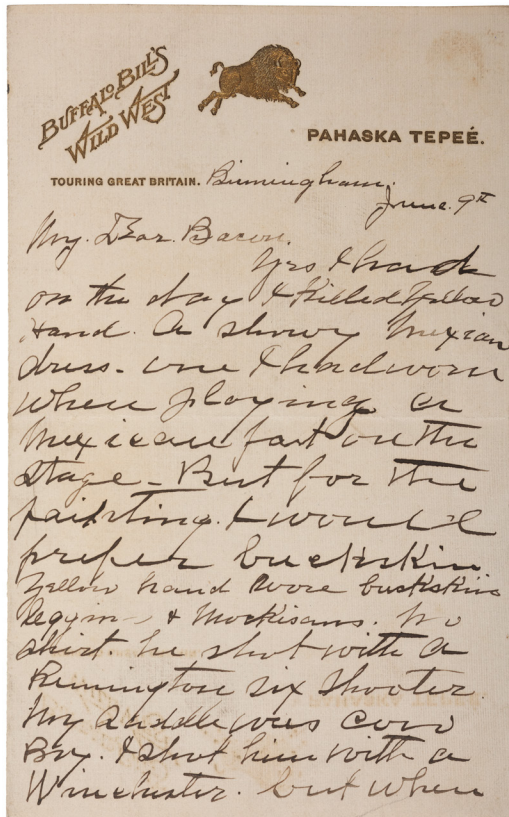 BUFFALO BILL'S
WILD WEST
PAHASKA TEPEÉ.
TOURING GREAT BRITAIN. Birmingham.
June. 9th
My. Dear. Bacon.
Yes I had
on the day I killed Yellow
Hand. A showy Mexican
dress. one I had worn
when playing a
Mexican part on the
stage - But for the
painting. I would
prefer buckskin
Yellow hand wore buckskin
legyins & Mockisans. No
shirt. he shot with a
Remington six shooter
My Saddle was Cow
Boy. I shot him with a
Winchester. but when